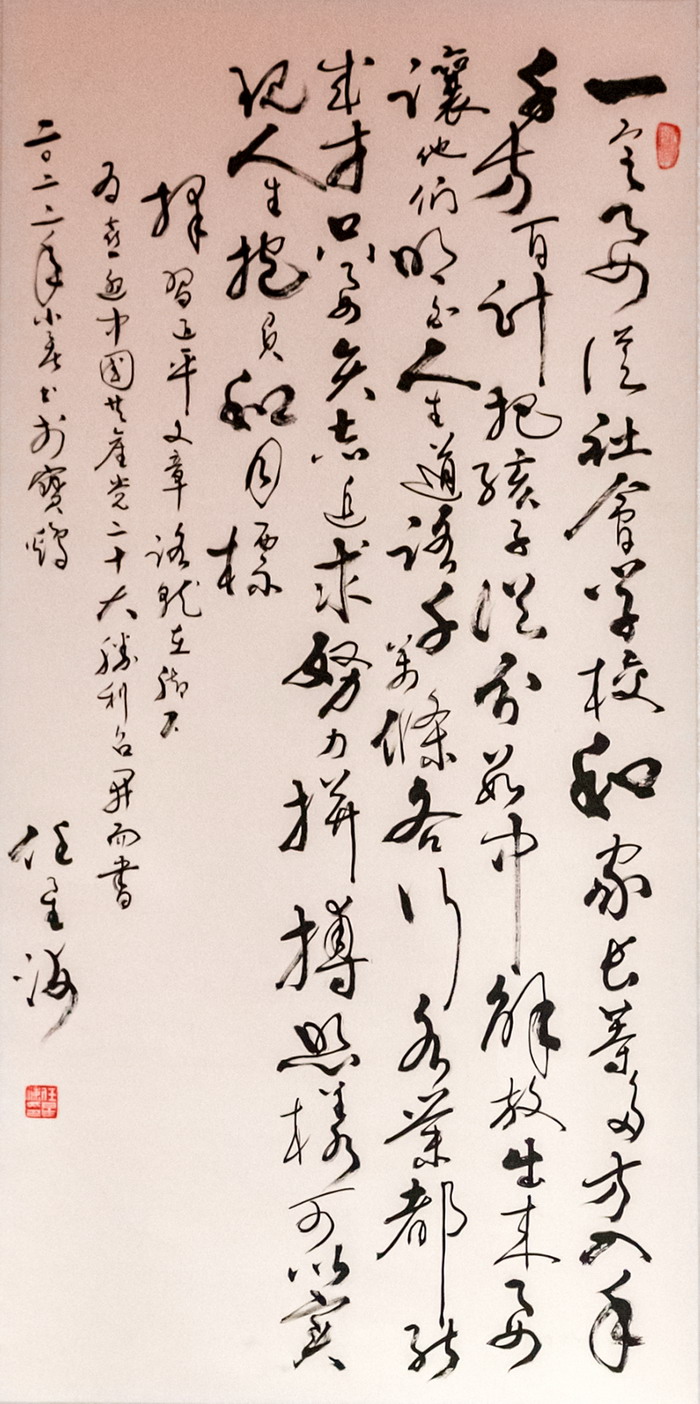 一定要从社会学校和家长等多方入手
千方百计把孩子从分数中解放出来要
讓他们明白人生道路千万條各行各業都能
成才只要矢志追求努力拼搏照样可以实
现人生抱负和目标
择习近平文章路就在脚下
为喜迎中國共產党二十大勝利召开而書
二〇二二年小春书于寶鸡
任海